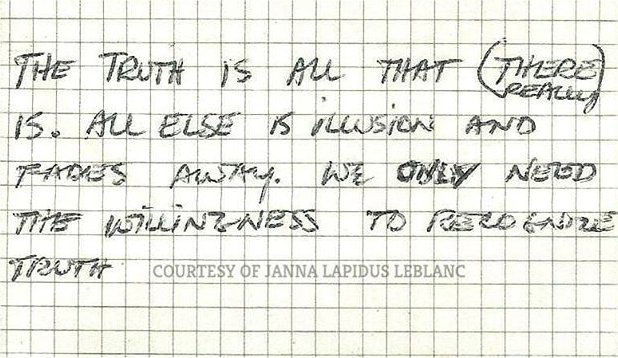 THE TRUTH IS ALL THAT (THERE)
REALLY
IS. ALL ELSE IS ILLUSION AND
FADES AWAY. WE ONLY NEED
THE WILLINGNESS TO RECOGNIZE
TRUTH
COURTESY OF JANNA LAPIDUS LEBLANC